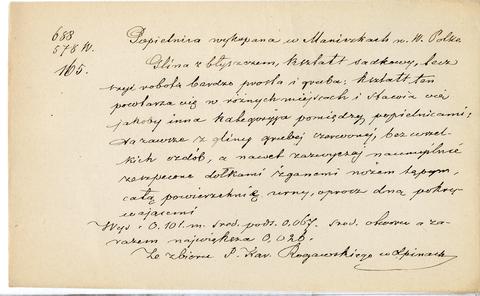 688
578 W.
165.
Popielnica wykopana w Maniszkach n. W. Polka
Glina z błyszczem, kształt sadkowy, lecz
robota bardzo prosta i gruba: kształt ten
powtarza się w różnych miejscach i stawia
jakoby inna kategoryja pomiędzy popielnicami;
zawsze z gliny grubej czerwonej, bez wszel-
kich ozdób, a nawet zazwyczaj naumyślnie
zeszpecone dołkami żganemi nożem tępym,
całą powierzchnię urny, oprócz dna pokry-
wającemi
Wys. 0.101 m. śred. pods. 0,067. śred. otworu a za-
razem największa 0,028.
Ze zbioru P. Kar. Rogawskiego w Ołpinach